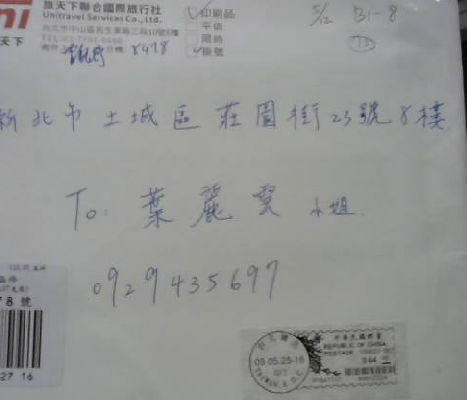 旅天下聯合國際旅行社
Unitravel Services Co., Ltd.
台北市中山區民生東路三段10號8樓
天下
印刷品
平信
限時
掛號
5/2 B1-8
8478
新北市土城區莊園街23號8樓
To: 葉麗雲 小姐
0929435697
78 號
27 16
05.05.25-16
TAIWAN, R.O.C.
REPUBLIC OF CHINA
POSTAGE